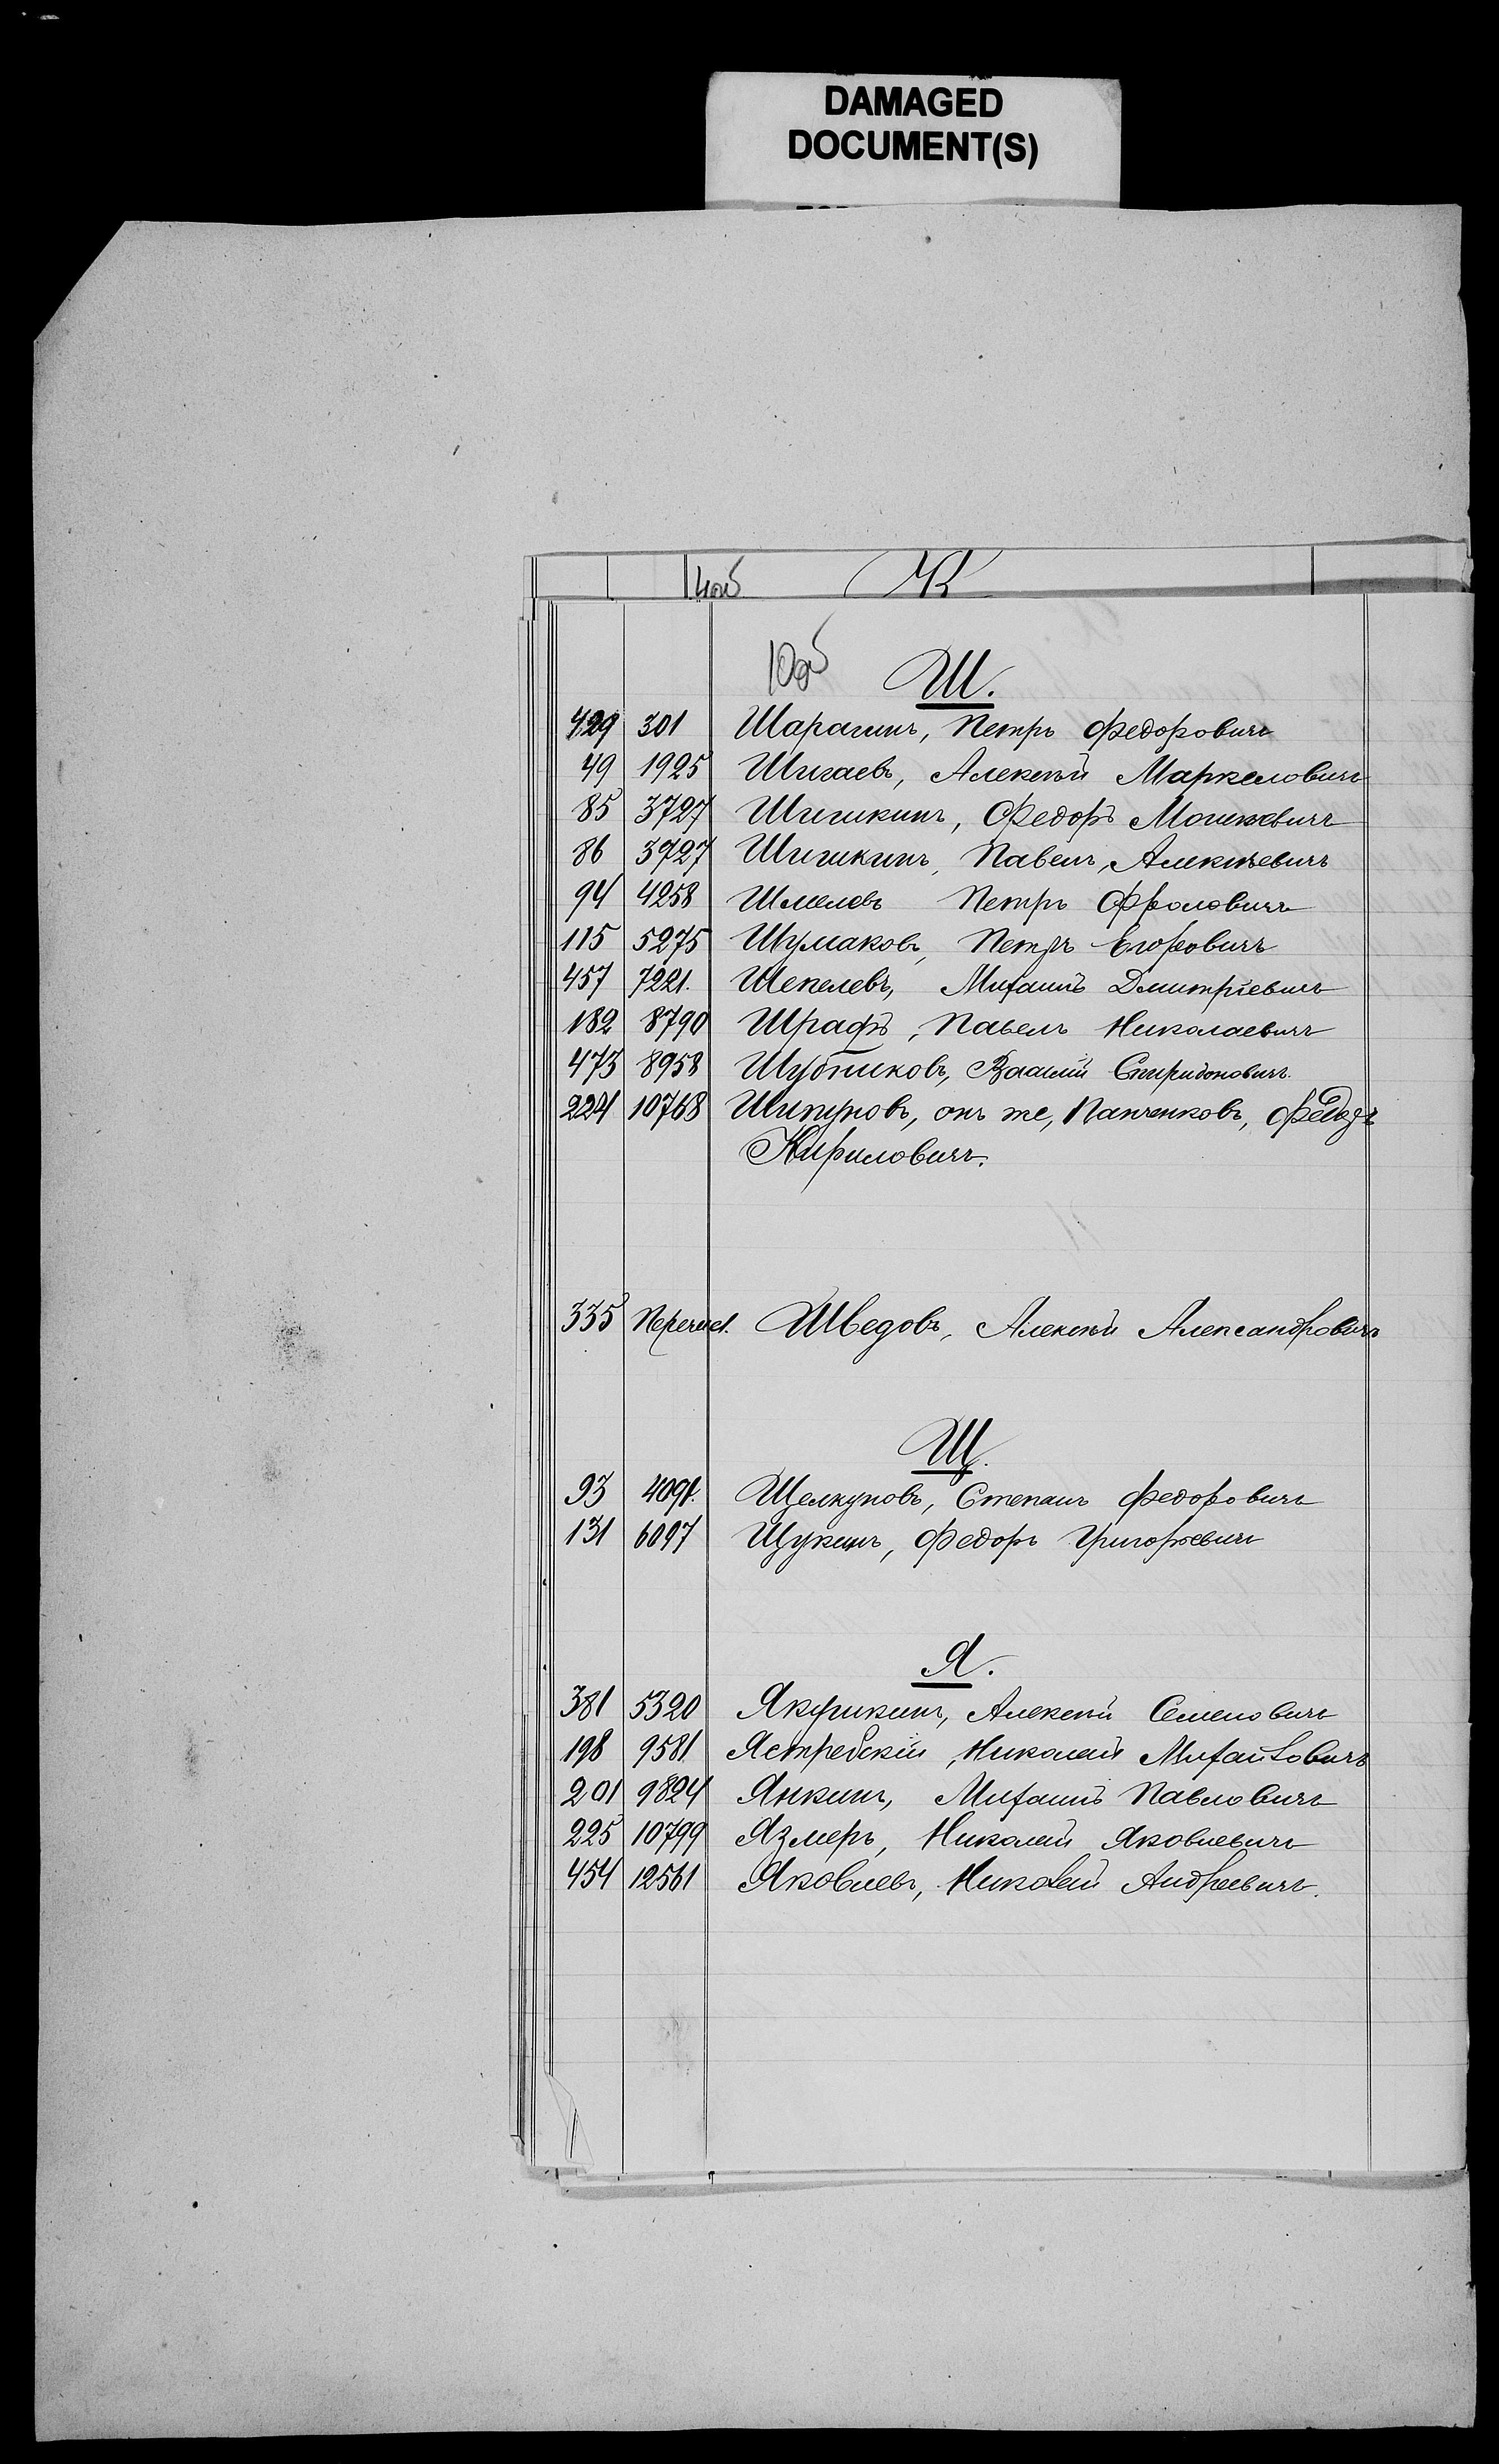 DAMAGED
DOCUMENT(S)
4об К
10об
Ш.
429 301 Шарагинъ, Петръ Федоровичъ
49 1925 Шигаевъ, Алексѣй Маркеловичъ
85 3727 Шишкинъ, Федоръ Моисеевичъ
86 3727 Шишкинъ, Павелъ, Алексѣевичъ
94 4258 Шмелевъ Петръ Фроловичъ
115 5275 Шумаковъ, Петръ Егоровичъ
457 7221. Шепелевъ, Михаилъ Дмитріевичъ
182 8790 Шрафъ, Павелъ Николаевичъ
473 8958 Шубниковъ, Василій Спиридоновичъ.
224 10768 Шипуновъ, онъ же, Панченковъ, Федоръ
Кириловичъ.
335 Перечисл. Шведовъ, Алексѣй Александровичъ
Щ.
93 4091. Щелкуновъ, Степанъ Федоровичъ
131 6097 Щукинъ, Федоръ Григорьевичъ
Я.
381 5320 Якушкинъ, Алексѣй Семеновичъ
198 9581 Ястребскій, Николай Михайловичъ
201 9824 Янкинъ, Михаилъ Павловичъ
225 10799 Язмеръ, Николай Яковлевичъ
454 12561 Яковлевъ, Николай Андреевичъ.